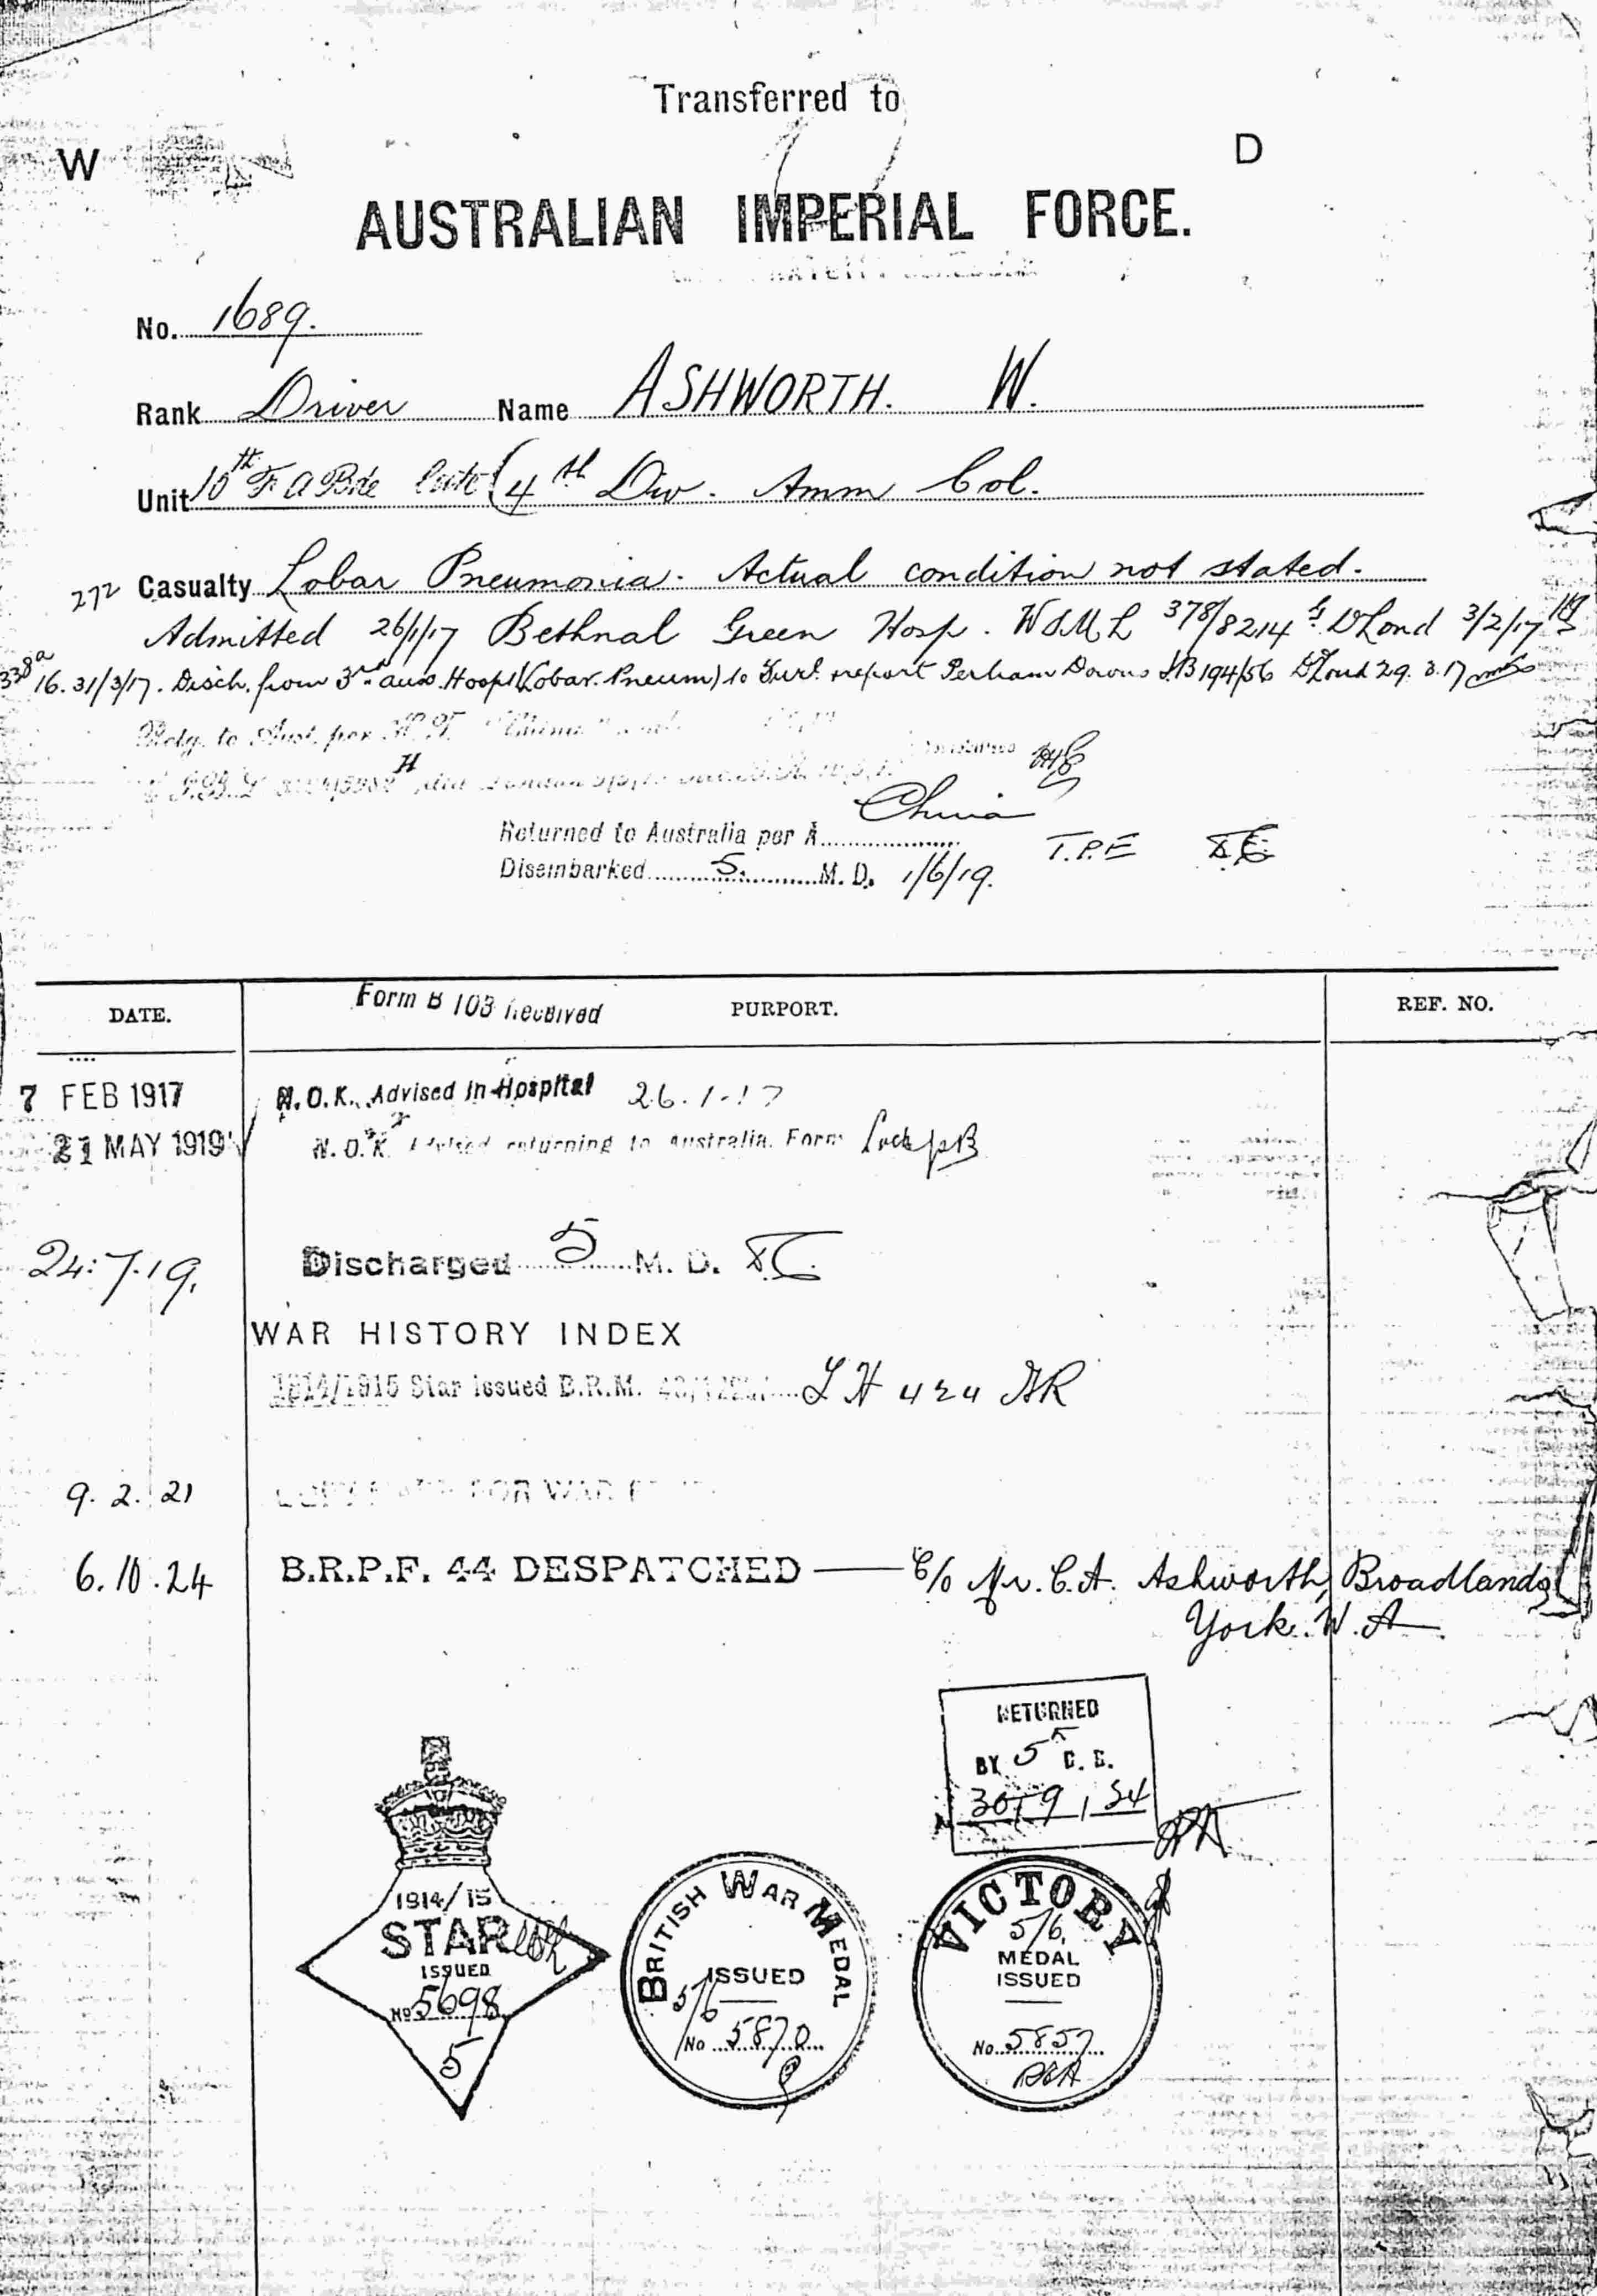 Transferred to
W
D
AUSTRALIAN IMPERIAL FORCE.
No. 1689.
Rank Driver Name ASHWORTH. W.
Unit 10th F A Bde (4th Div. Amm Col.
272 Casualty Lobar Pneumonia. Actual condition not stated.
Admitted 26/1/17 Bethnal Green Hosp. 378/8214 Lond 3/2/17
338a 16. 31/3/17. Disch. from 3rd aus. Hospl (Lobar. Pneum) to Furl. report Perham Downs 194/56 Lond 29. 3. 17
Rtdg. to Aust. per H.T. "China"
H
China
Returned to Australia per A
T.P.E
Disembarked 5. M. D. 1/6/19.
DATE.
Form B 103 Received
PURPORT.
REF. NO.
7 FEB 1917 N.O.K. Advised in Hospital 26.1.17
21 MAY 1919 N.O.K. Advised returning to Australia. Form
24.7.19. Discharged 5 M. D.
WAR HISTORY INDEX
1914/1915 Star issued B.R.M. L H 424
9.2.21 FOR WAR
6.10.24 B.R.P.F. 44 DESPATCHED — C/o Mr. C.A. Ashworth, Broadlands
York. W.A.
RETURNED
BY 5
30/9/24
1914/15
STAR
ISSUED
No 5698
5
BRITISH WAR MEDAL
ISSUED
5/6
No 5870
VICTORY
5/6.
MEDAL
ISSUED
No. 5857